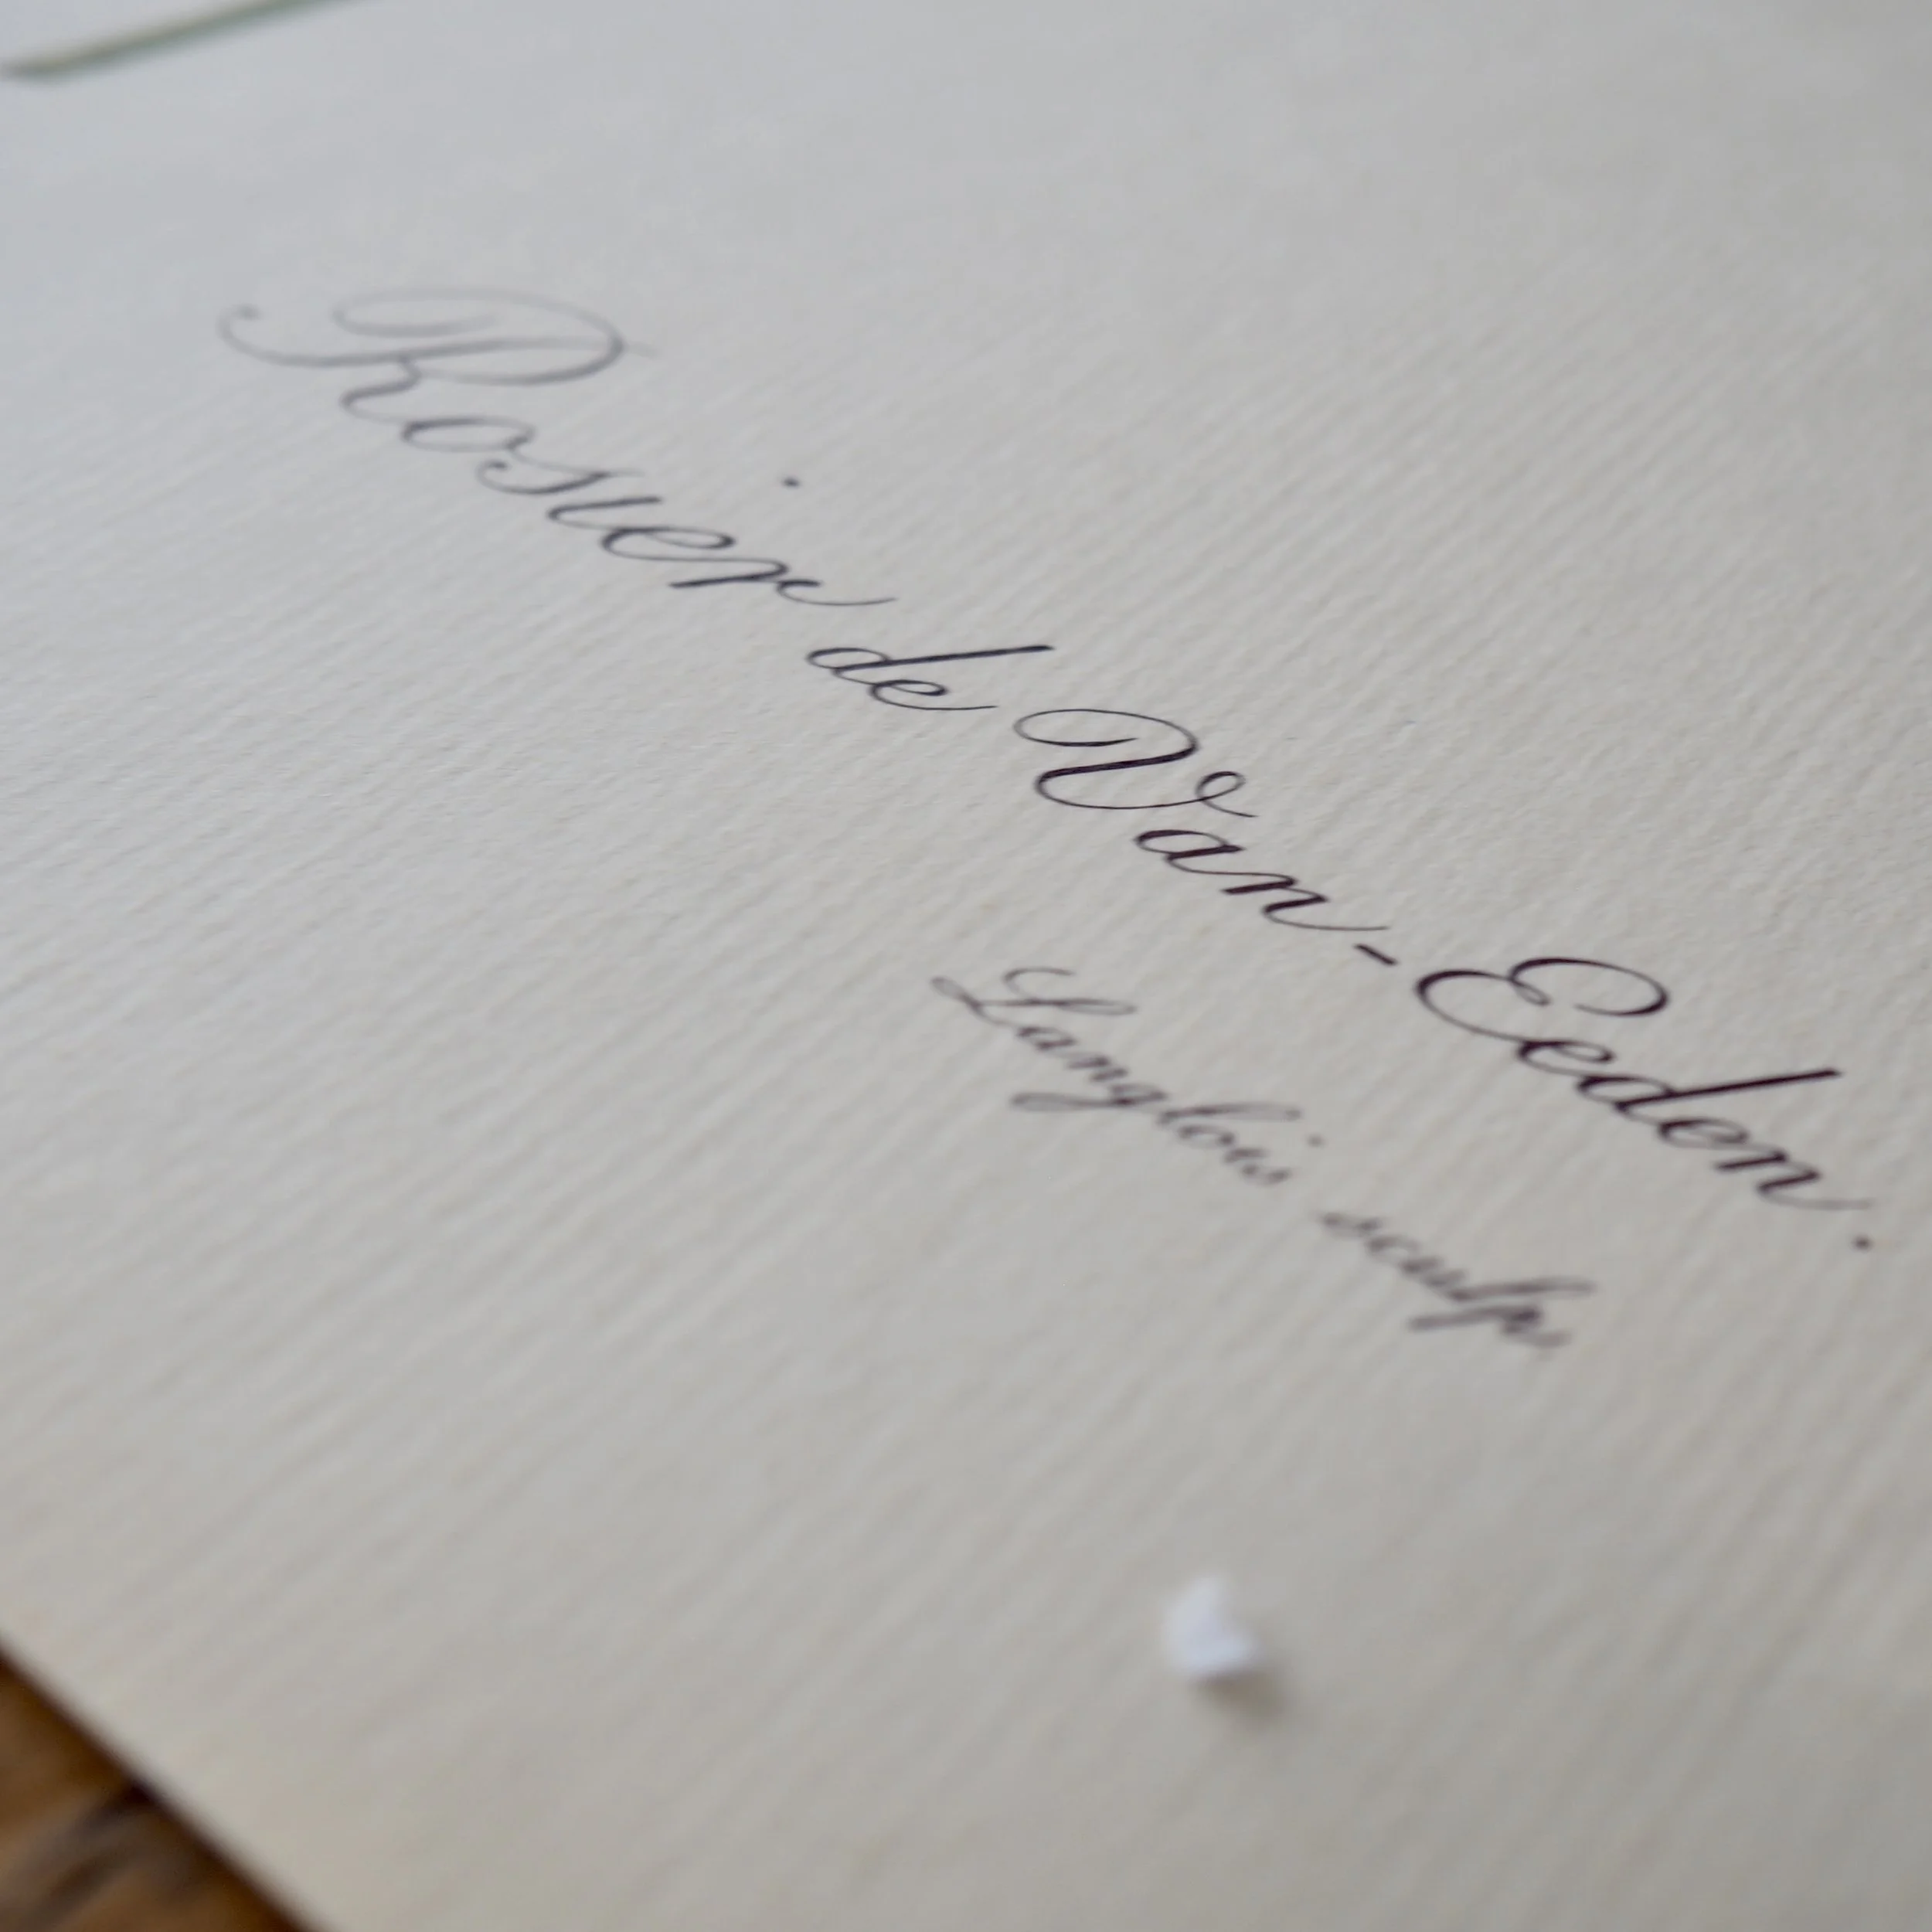 Rosier de Van-Eeden.
Langlois sculp